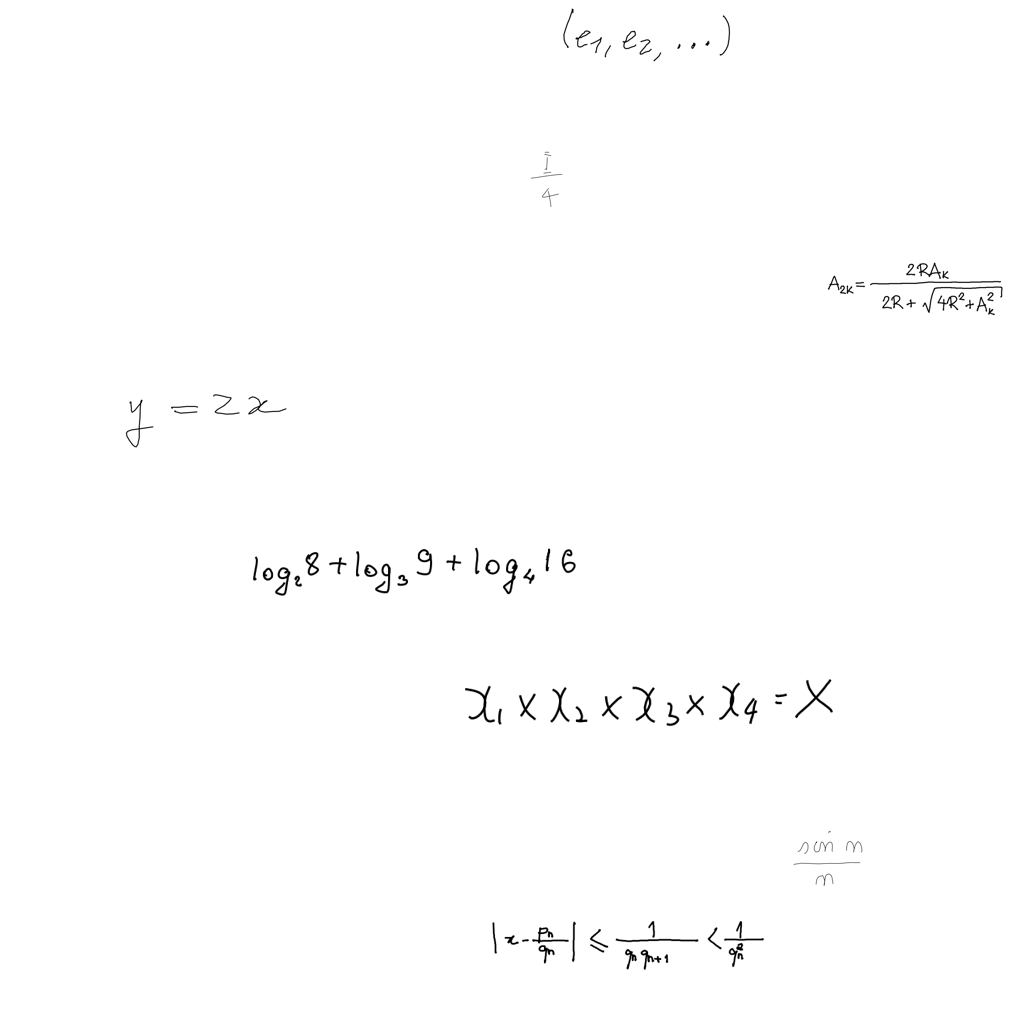 (e1, e2, ...)
\frac{I}{4}
A_{2K} = \frac{2RA_K}{2R + \sqrt{4R^2 + A_K^2}}
y = 2x
log_2 8 + log_3 9 + log_4 16
x_1 × x_2 × x_3 × x_4 = X
\frac{sin n}{n}
|x - \frac{p_n}{q_n}| ≤ \frac{1}{q_n q_{n+1}} < \frac{1}{q_n^2}